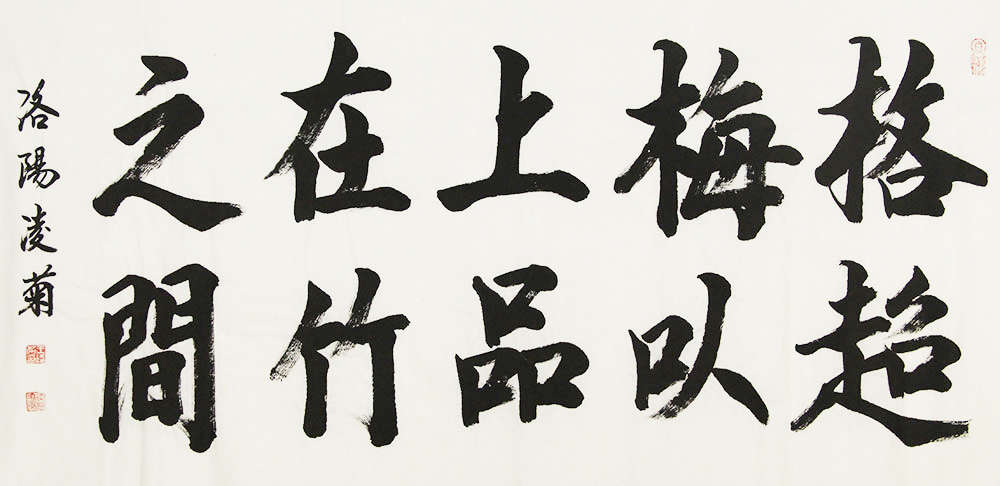 格超
梅以
上品
在竹
之間
洛陽凌菊